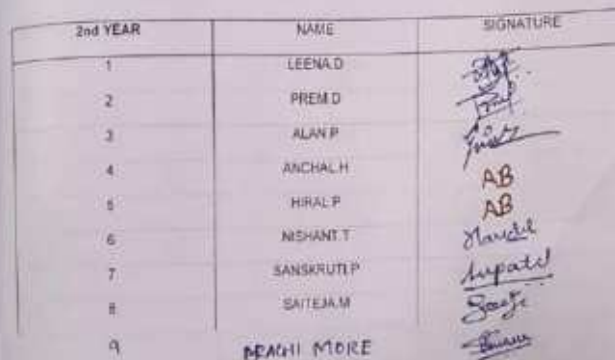 2nd YEAR NAME SIGNATURE
1 LEENA.D
2 PREM.D
3 ALAN.P
4 ANCHAL.H AB
5 HIRAL.P AB
6 NISHANT.T
7 SANSKRUTI.P
8 SAITEJA.M
9 PRACHI MORE